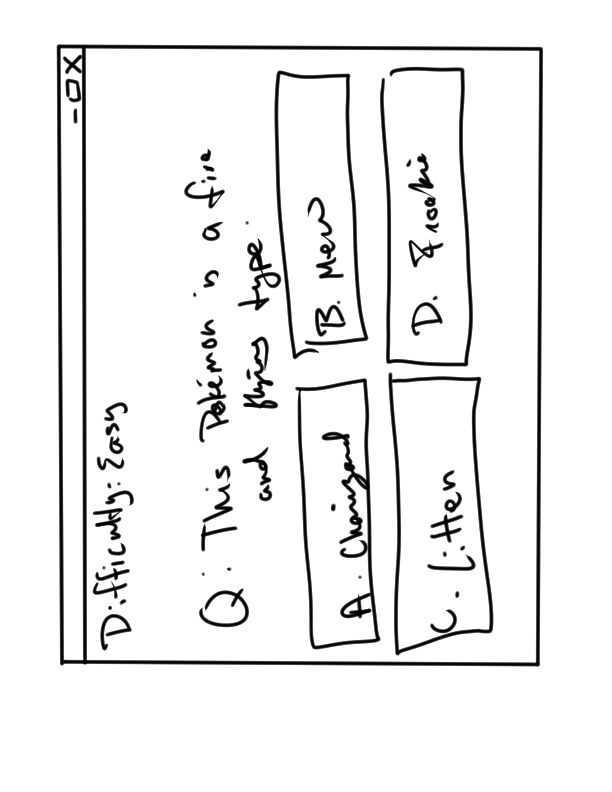 Difficulty: Easy
Q: This Pokémon is a fire
and flying type.
A. Charizard
B. Mew
C. Litten
D. Frookie